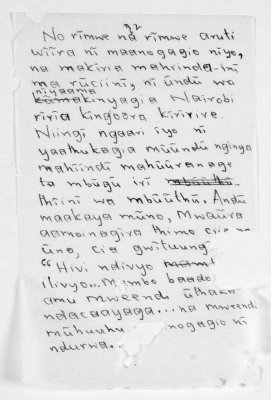 32
No rĩmwe na rĩmwe aruti
wĩĩra nĩ maanogagio nĩyo,
na makĩria mahrinda-inĩ
ma rũciinĩ, nĩ ũndũ wa
niyaama
kamakinyagia Nairobi
rĩrĩa kĩngoora kĩrĩrĩre.
Nĩĩngĩ ngaari ĩyo nĩ
yaathũkagia mũũndũ nginya
mahĩĩndĩ mahũũranage
ta mbũgũ irĩ
thĩĩnĩ wa mbũũthũ. Andũ
maakaya mũno, Mwaũra
aamoinagĩra thimo cia
ũno, cia gwĩtuung
"Hivi ndivyo
ilivyo... Mambo baado
amu mweendi ũthaka
ndacaayaga... na mweendi
mũhuuhu nogagio nĩ
ndurwa..